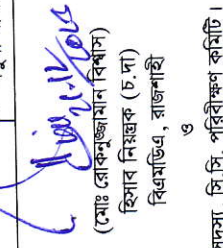 (মোঃ রোকনুজ্জামান বিশ্বাস)
হিসাব নিয়ন্ত্রক (চ.দা)
বিএমডিএ, রাজশাহী
ও
সদস্য সি.সি. পরিবীক্ষণ কমিটি।